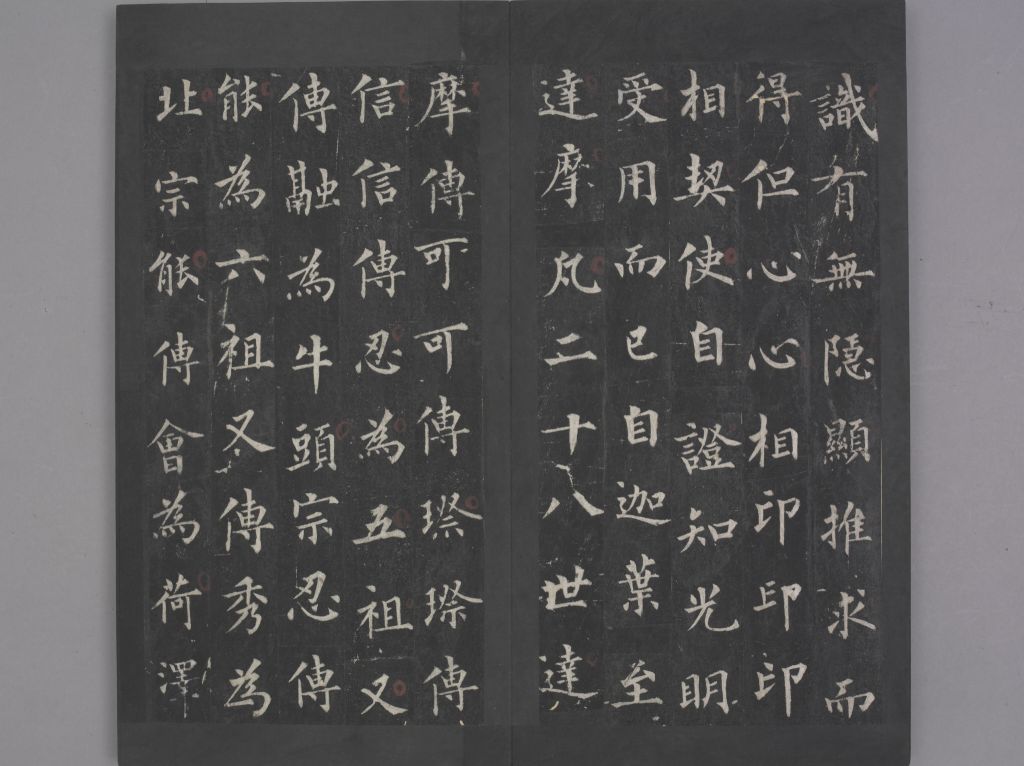 識有無隱顯推求而
得但心心相印印印
相契使自證知光明
受用而已自迦葉至
達摩凡二十八世達
摩傳可可傳璨璨傳
信信傳忍為五祖又
傳融為牛頭宗忍傳
能為六祖又傳秀為
北宗能傳會為荷澤